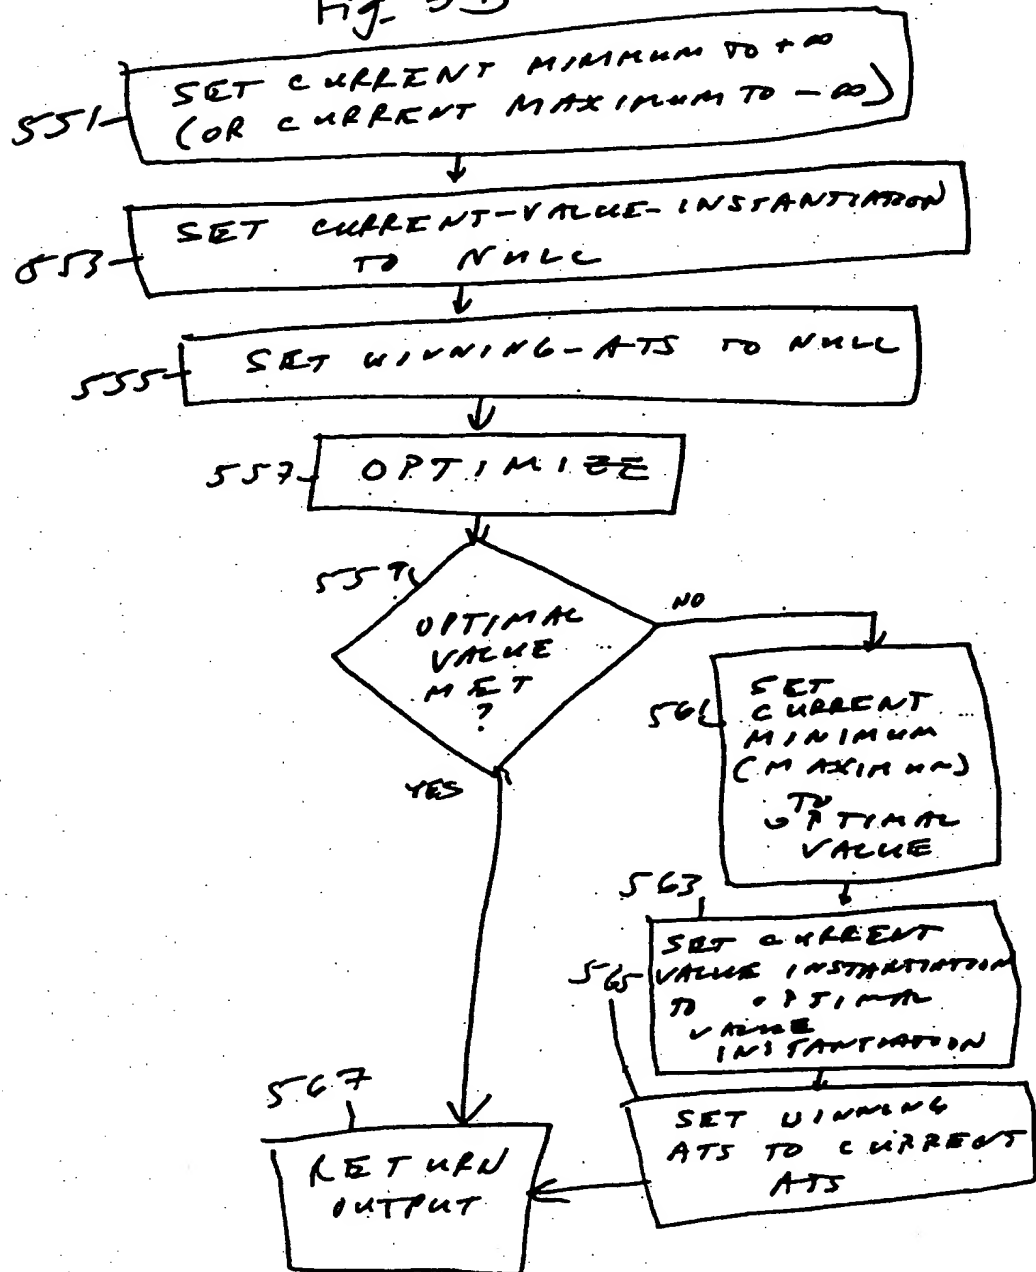 Fig. 5B
SET CURRENT MINIMUM TO +∞
(OR CURRENT MAXIMUM TO -∞)
551
SET CURRENT-VALUE-INSTANTIATION
TO NULL
553
SET WINNING-ATS TO NULL
555
557
OPTIMIZE
559
OPTIMAL
VALUE
MET
?
NO
YES
561
SET
CURRENT
MINIMUM
(MAXIMUM)
TO
OPTIMAL
VALUE
563
SET CURRENT
VALUE INSTANTIATION
TO OPTIMAL
VALUE
INSTANTIATION
565
SET WINNING
ATS TO CURRENT
ATS
567
RETURN
OUTPUT